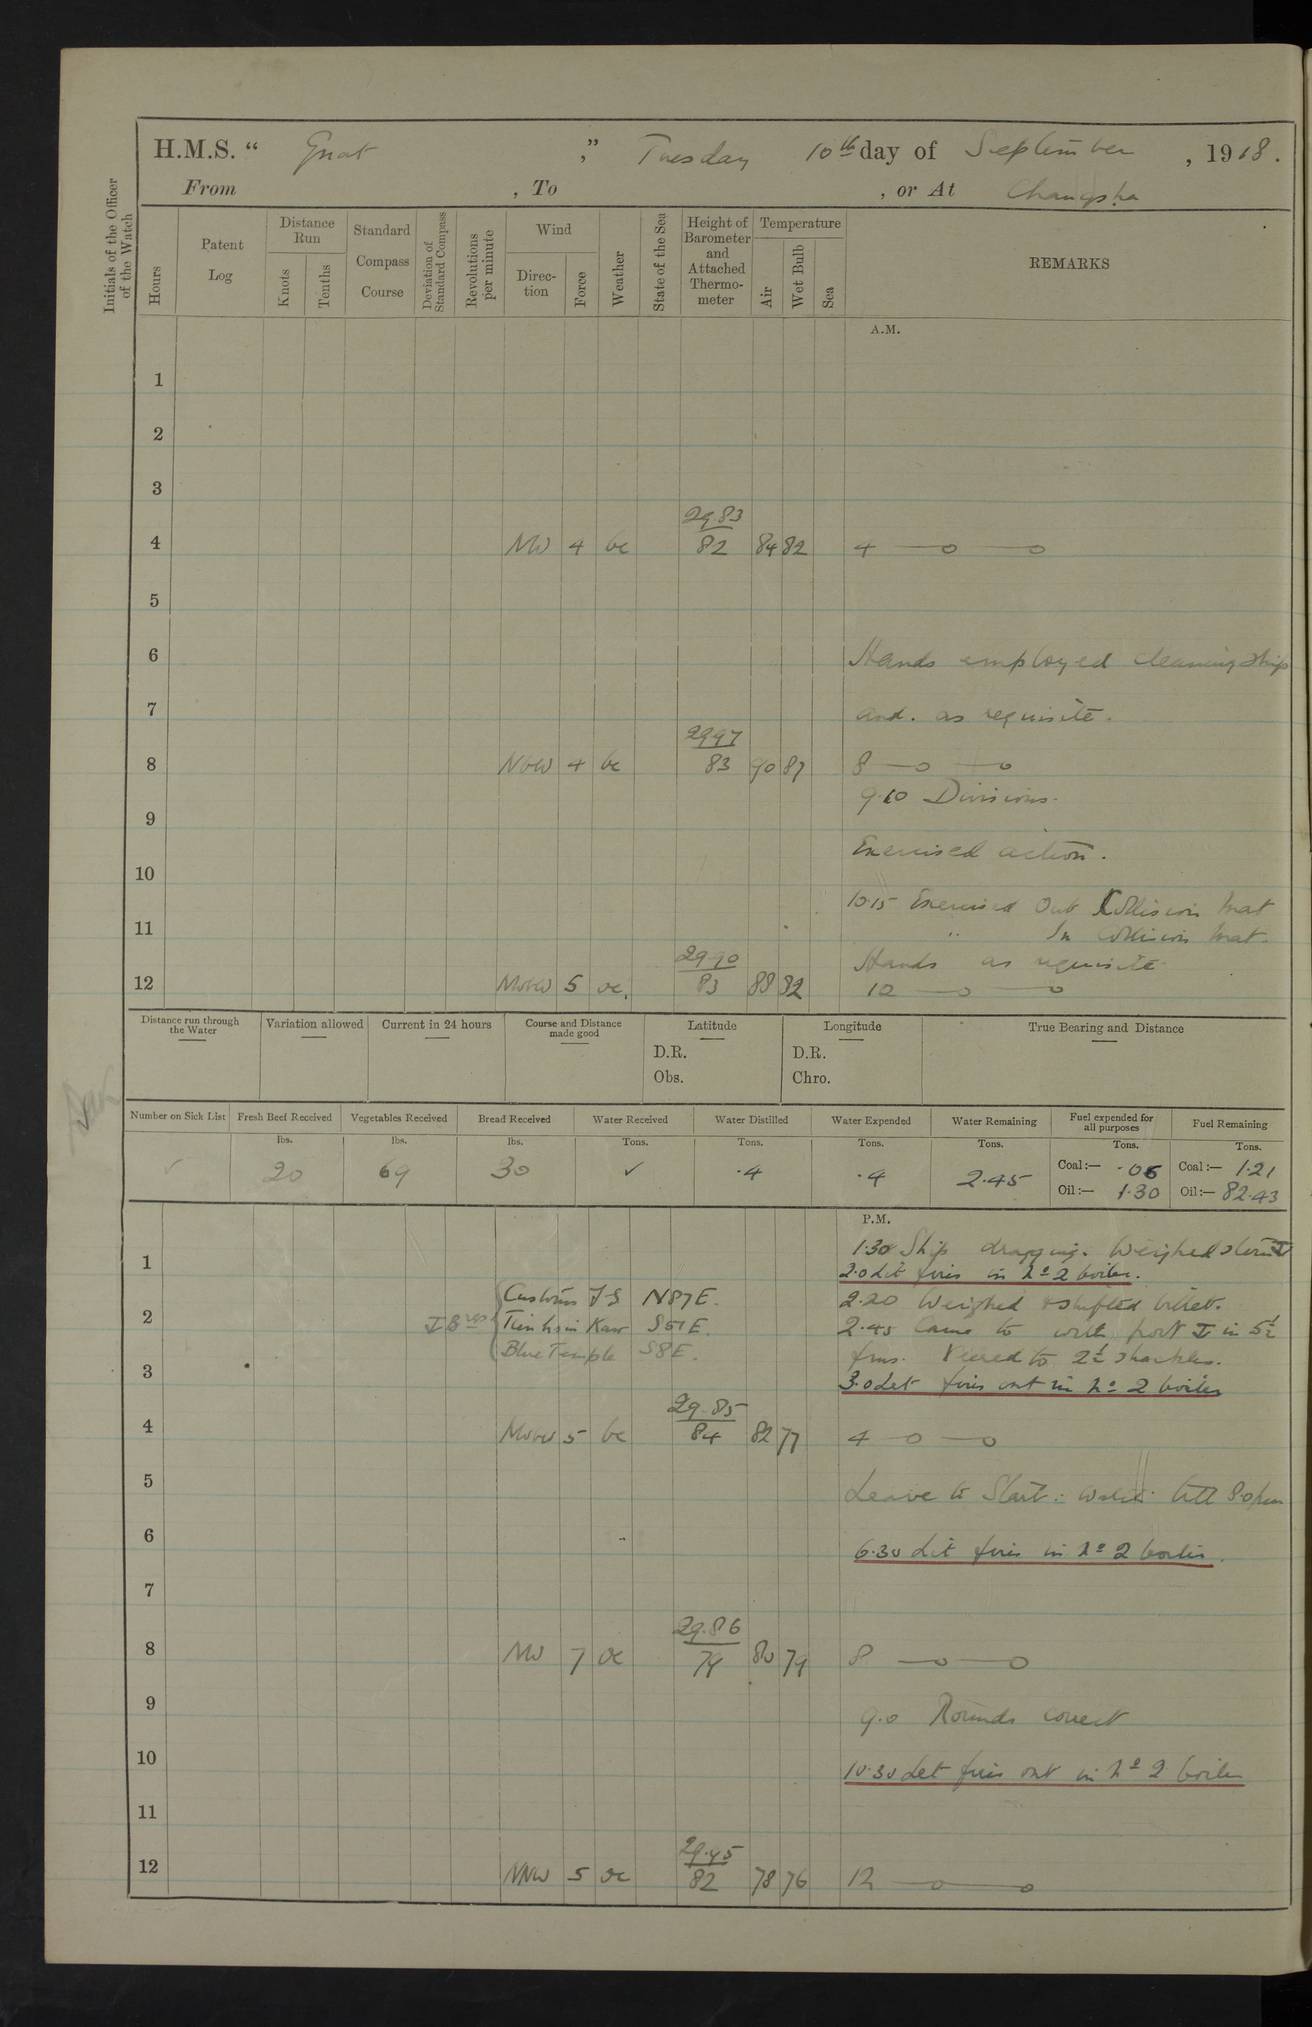 H.M.S. “ Gnat ,” Tuesday 10th day of September , 1918.
From , To , or At Changsha
Initials of the Officer of the Watch
Hours
Patent Log
Distance Run
Knots
Tenths
Standard Compass Course
Deviation of Standard Compass
Revolutions per minute
Wind
Direc- tion
Force
Weather
State of the Sea
Height of Barometer and Attached Thermo- meter
Temperature
Air
Wet Bulb
Sea
REMARKS
A.M.
1
2
3
29.83
4 NW 4 bc 82 84 82 4 —o —o
5
6 Hands employed cleaning ship
7 and. as requisite.
29 97
8 NbW 4 bc 83 90 87 8 —o —o
9.10 Divisions.
9
Exercised action.
10
10.15 Exercised Out Collision mat
11 " In Collision mat.
29 90 Hands as requisite
12 5 oc. 83 88 82 12 —o —o
Distance run through the Water
Variation allowed
Current in 24 hours
Course and Distance made good
Latitude
Longitude
True Bearing and Distance
D.R. D.R.
Obs. Chro.
Number on Sick List
Fresh Beef Received
Vegetables Received
Bread Received
Water Received
Water Distilled
Water Expended
Water Remaining
Fuel expended for all purposes
Fuel Remaining
lbs. lbs. lbs. Tons. Tons. Tons. Tons. Tons. Tons.
✓ 20 69 30 ✓ .4 .4 2.45 Coal:— .06 Coal:— 1.21
Oil:— 1.30 Oil:— 82.43
P.M.
1.30 Ship dragging. Weighed stern
1
2.0 Lit fires in No 2 boiler.
Customs J S N87E. 2.20 Weighed & shifted billet.
2 Kaw S51E. 2.45 Came to with port in 5½
Blue Temple S8E. fms. Veered to 2½ shackles.
3
3.0 Let fires out in No 2 boiler
29.85
4 5 bc 84 82 77 4 —o —o
5 Leave to till 8.0 pm
6
6.30 Lit fires in No 2 boiler.
7
29.86
8 NW 7 oc 79 80 79 8 —o —o
9
9.0 Rounds correct
10
10.30 Let fires out in No 2 boiler
11
29.95
12 NNW 5 oc 82 78 76 12 —o —o